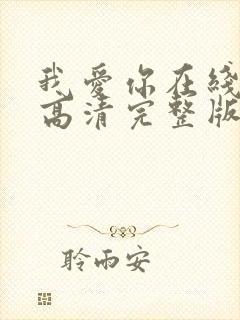 我愛你在綫
高清完整版
聆雨安